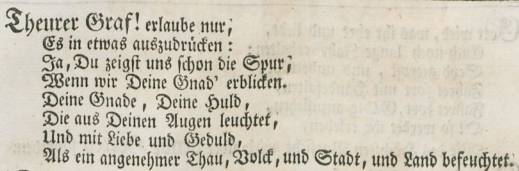 Theurer Graf! erlaube nur,
Es in etwas auszudrücken:
Ja, Du zeigst uns schon die Spur,
Wenn wir Deine Gnad' erblicken.
Deine Gnade, Deine Huld,
Die aus Deinen Augen leuchtet,
Und mit Liebe und Geduld,
Als ein angenehmer Thau, Volck, und Stadt, und Land befeuchtet.